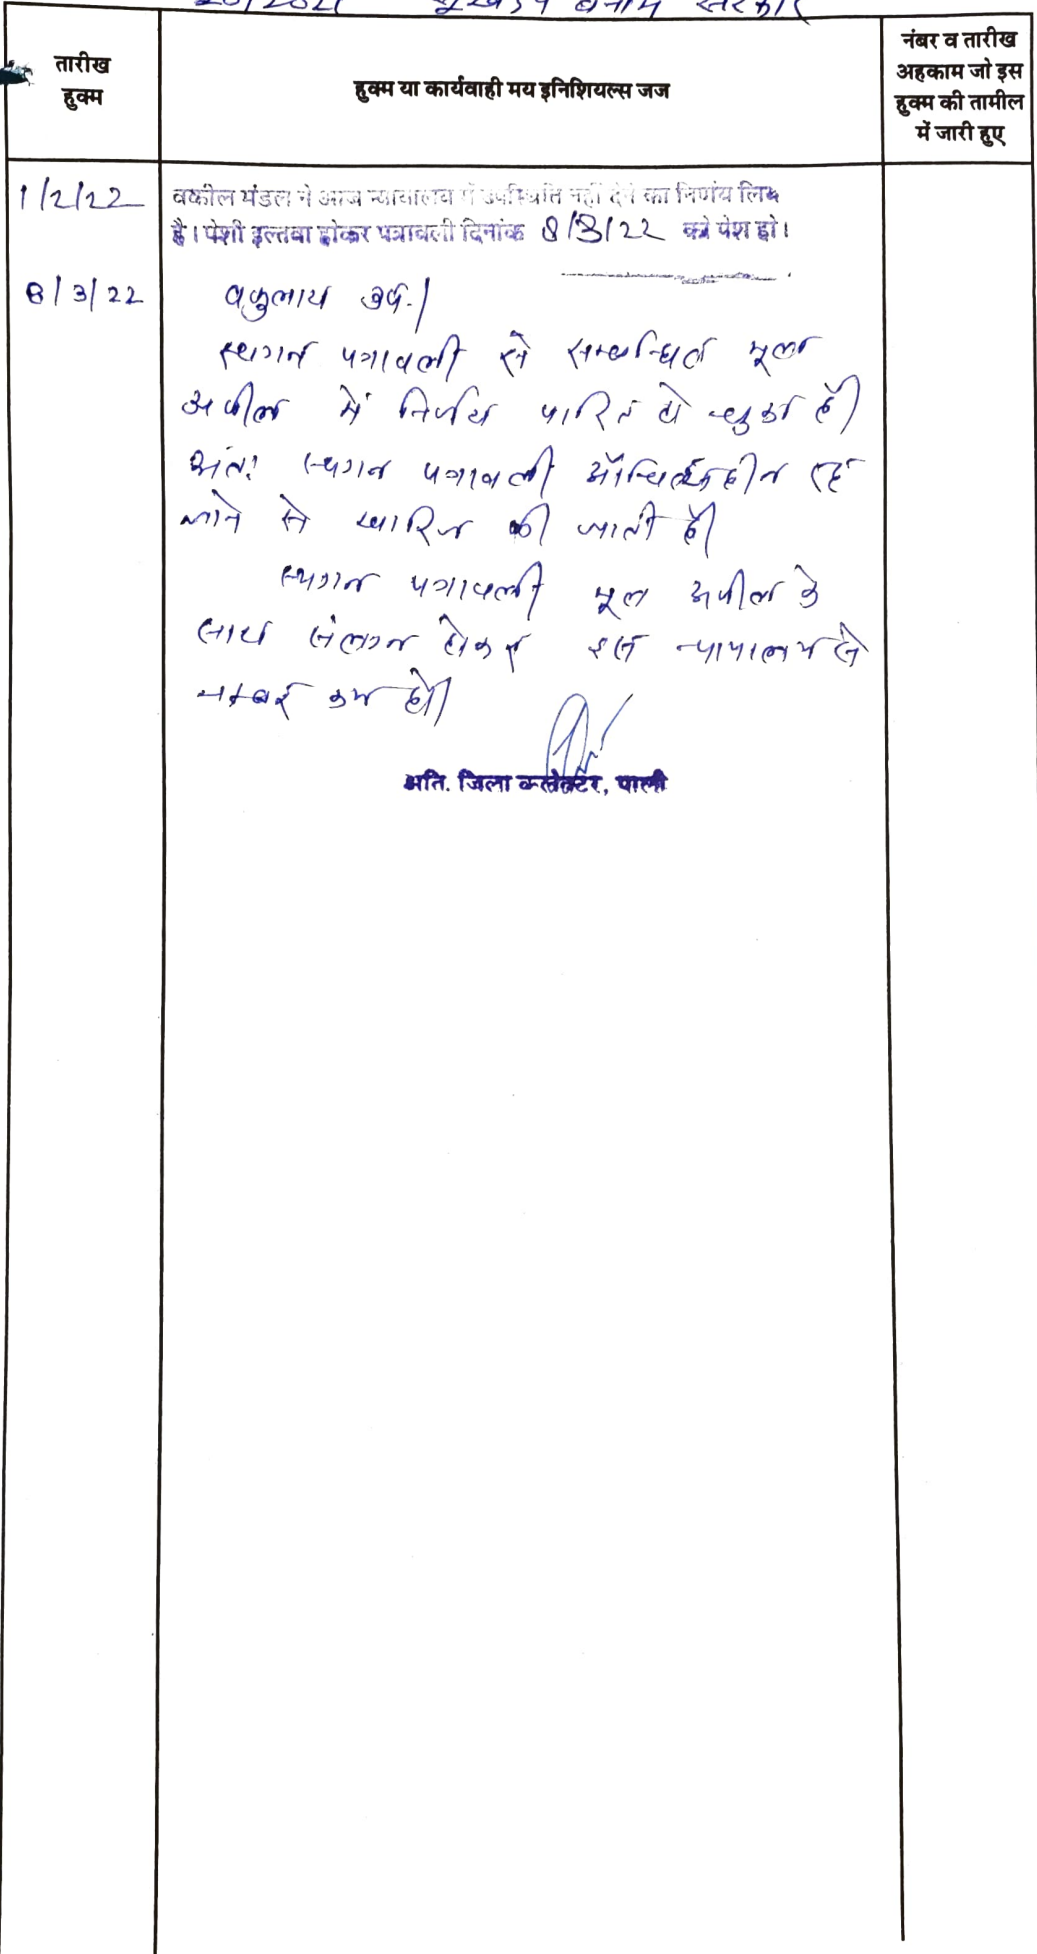 बनाम सरकार
तारीख
हुक्म
हुक्म या कार्यवाही मय इनिशियल्स जज
नंबर व तारीख
अहकाम जो इस
हुक्म की तामील
में जारी हुए
1/2/22
वकील मंडल ने आज न्यायालय में उपस्थिति नहीं देने का निर्णय लिया
है। पेशी इल्तवा होकर पत्रावली दिनांक 8/3/22 को पेश हो।
8/3/22
वकुलाय उप.।
स्थगन पत्रावली से सम्बन्धित मूल
अपील में निर्णय पारित हो चुका है।
अतः स्थगन पत्रावली औचित्यहीन रह
जाने से खारिज की जाती है।
स्थगन पत्रावली मूल अपील के
साथ संलग्न होकर इस न्यायालय से
नम्बर कम हो।
अति. जिला कलेक्टर, पाली